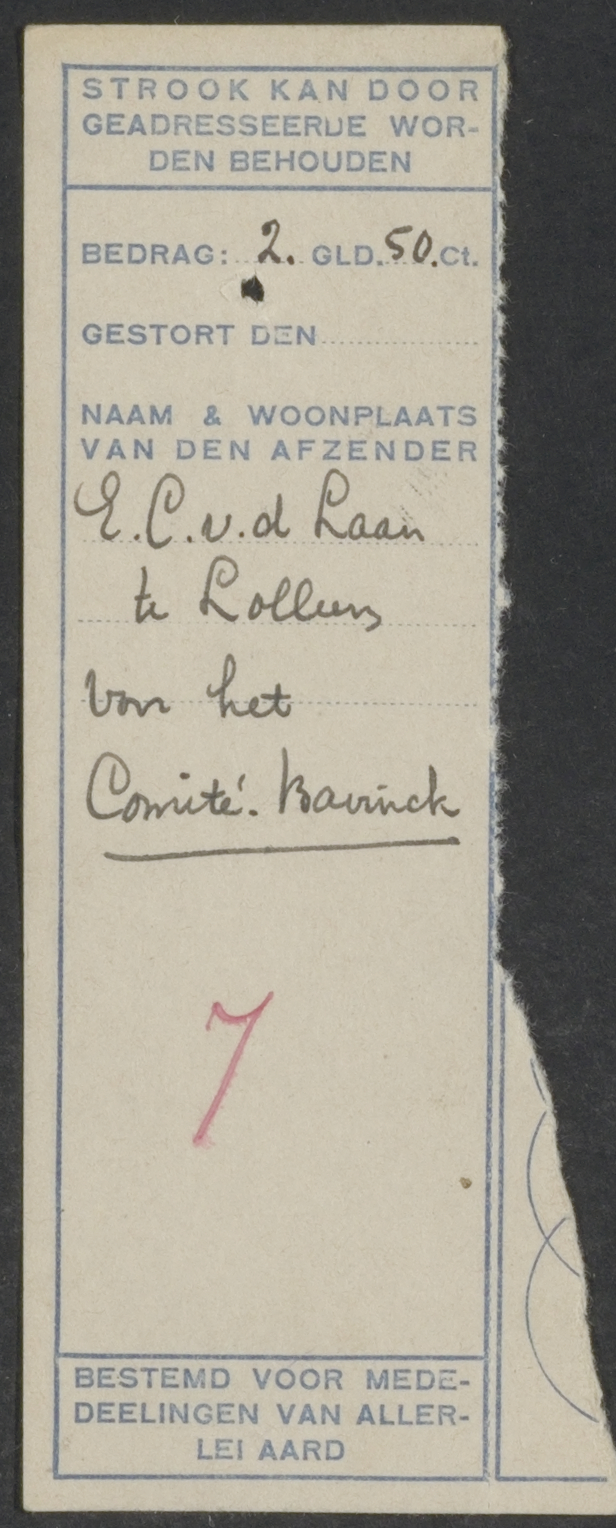 STROOK KAN DOOR
GEADRESSEERDE WOR-
DEN BEHOUDEN
BEDRAG: 2. GLD. 50. Ct.
GESTORT DEN
NAAM & WOONPLAATS
VAN DEN AFZENDER
E.C.v.d Laan
te Kollum
voor het
Comité. Bavinck
7
BESTEMD VOOR MEDE-
DEELINGEN VAN ALLER-
LEI AARD